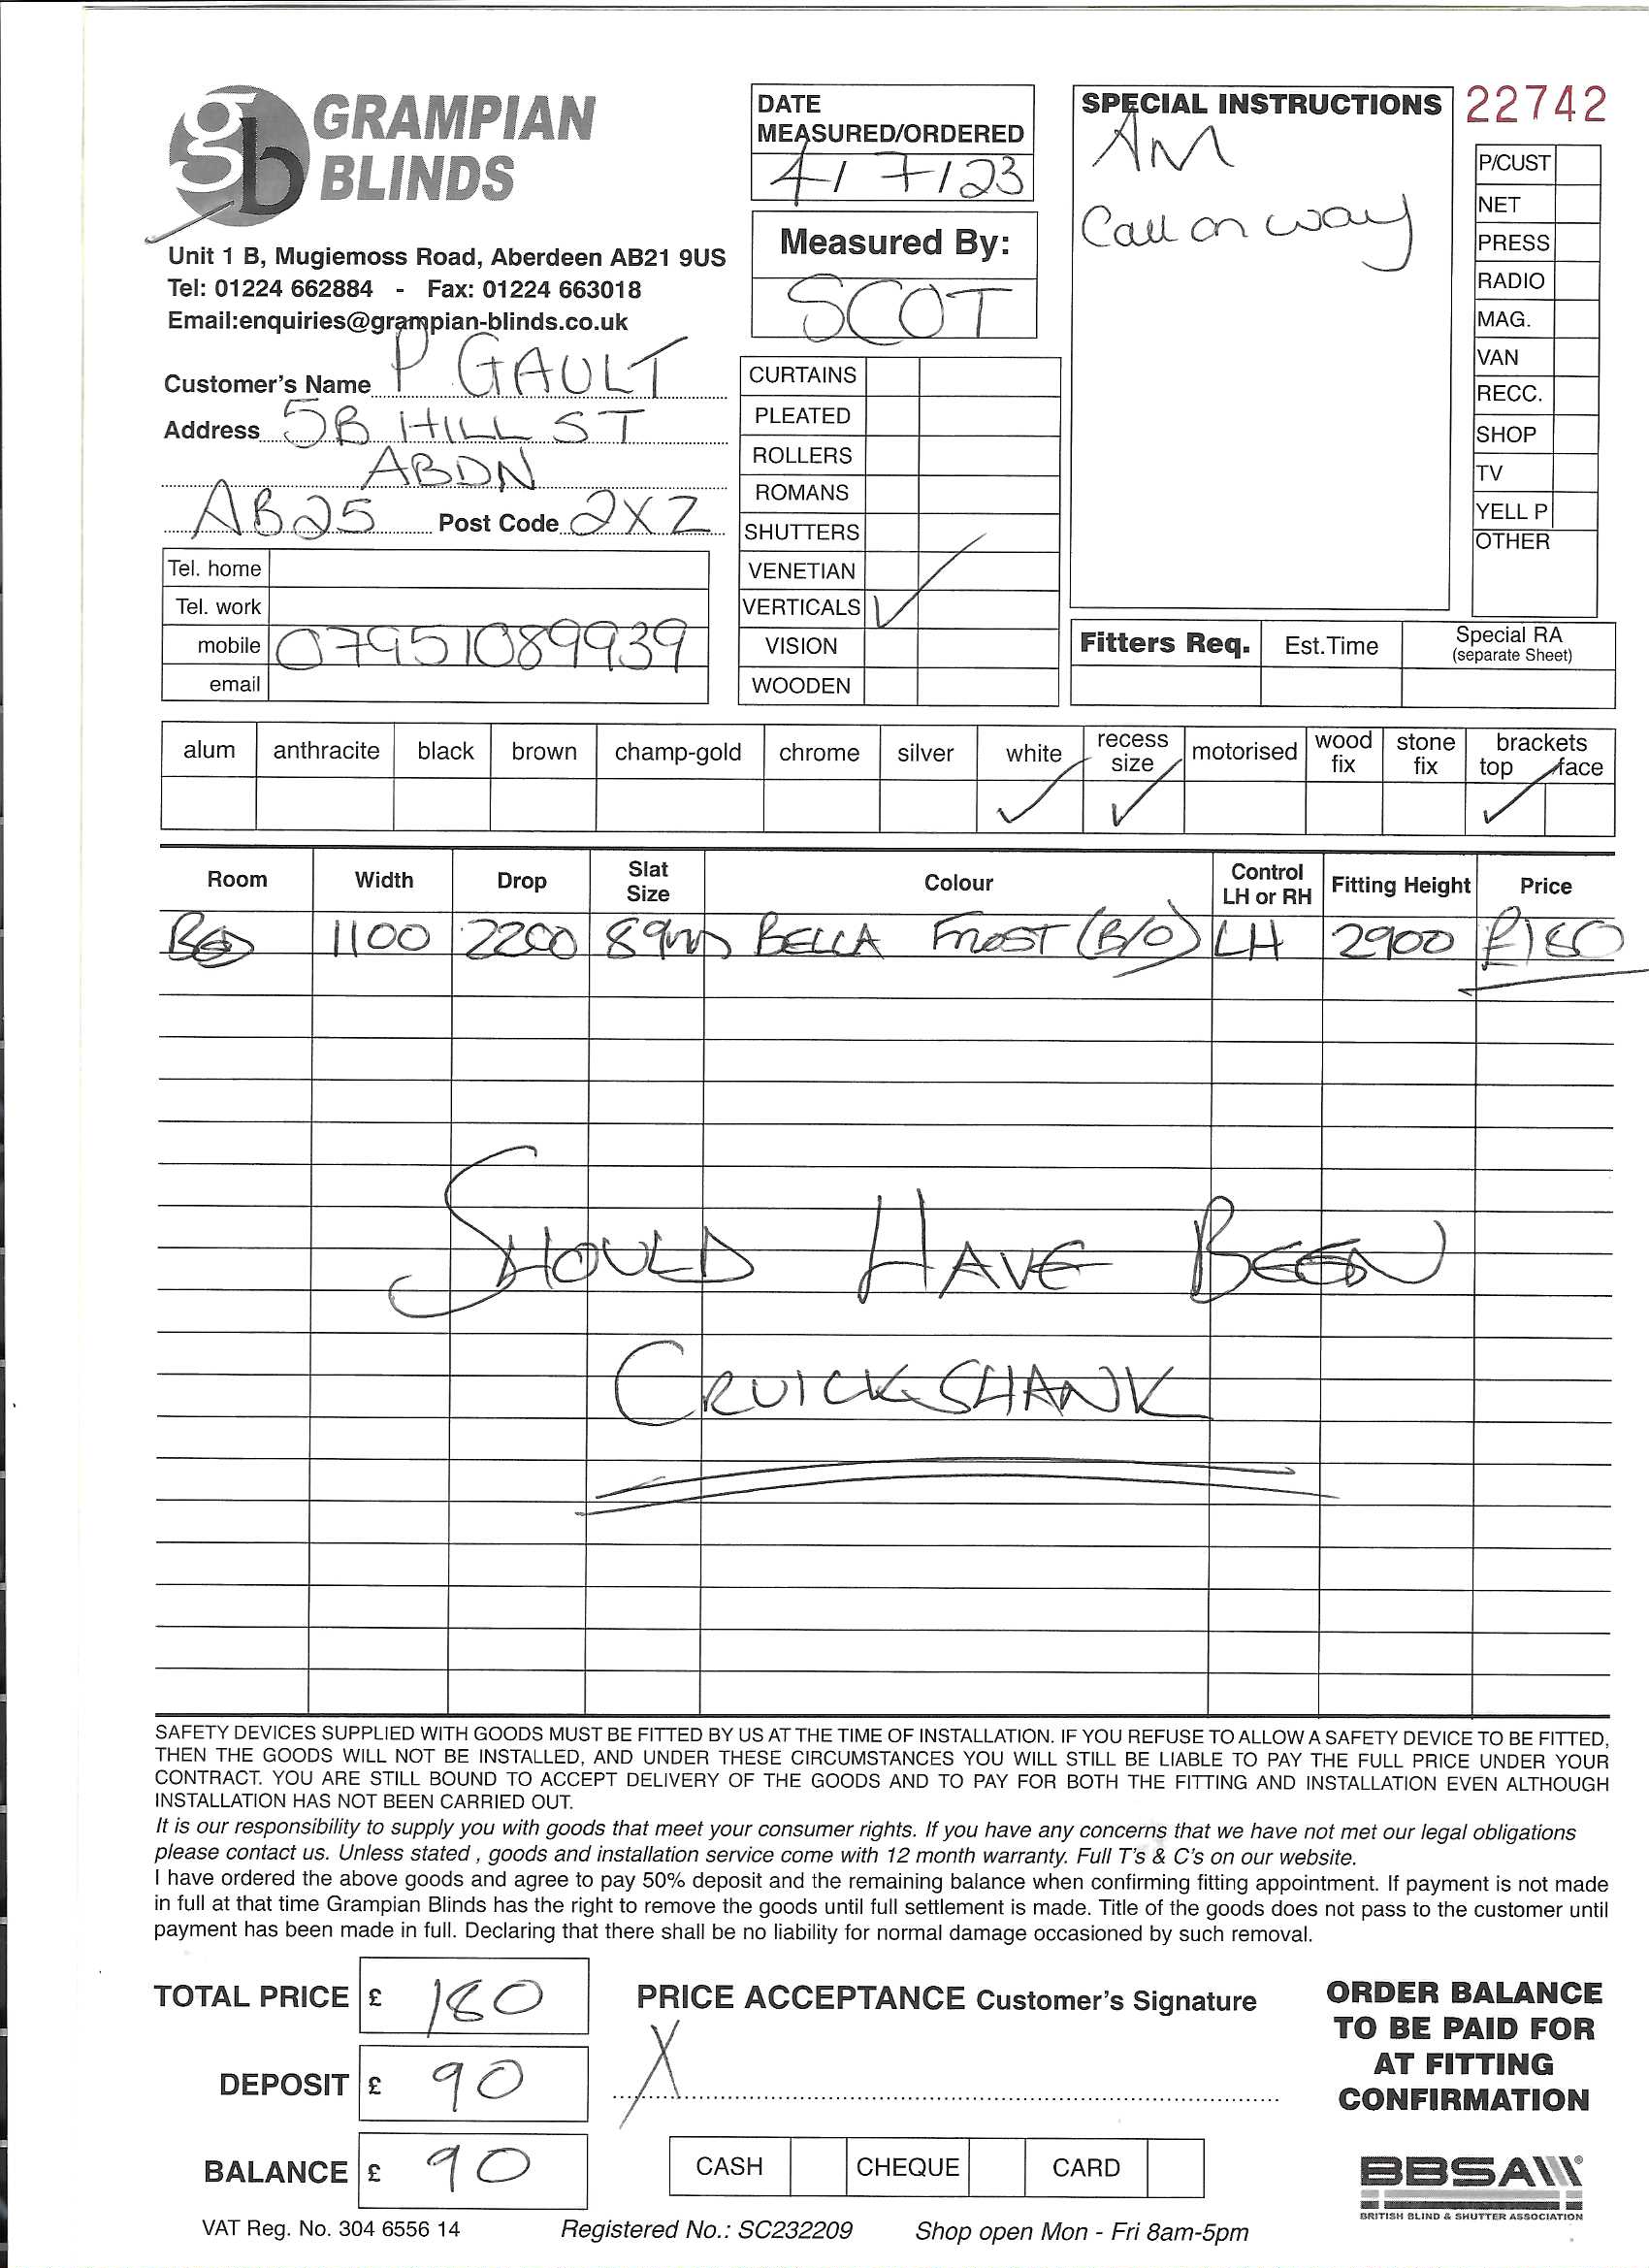 gb GRAMPIAN
BLINDS
Unit 1 B, Mugiemoss Road, Aberdeen AB21 9US
Tel: 01224 662884 - Fax: 01224 663018
Email:enquiries@grampian-blinds.co.uk
Customer's Name P GAULT
Address 5B HILL ST
ABDN
AB25 Post Code 2XZ
Tel. home
Tel. work
mobile 07951089939
email
DATE
MEASURED/ORDERED
4/7/23
Measured By:
SCOT
CURTAINS
PLEATED
ROLLERS
ROMANS
SHUTTERS
VENETIAN
VERTICALS ✓
VISION
WOODEN
SPECIAL INSTRUCTIONS
AM
Call on way
22742
P/CUST
NET
PRESS
RADIO
MAG.
VAN
RECC.
SHOP
TV
YELL P
OTHER
Fitters Req. Est.Time Special RA
(separate Sheet)
alum anthracite black brown champ-gold chrome silver white recess size motorised wood fix stone fix brackets top face
✓ ✓ ✓
Room Width Drop Slat Size Colour Control LH or RH Fitting Height Price
BED 1100 2200 89mm BELLA FROST (B/O) LH 2900 £180
SHOULD HAVE BEEN
CRUICKSHANK
SAFETY DEVICES SUPPLIED WITH GOODS MUST BE FITTED BY US AT THE TIME OF INSTALLATION. IF YOU REFUSE TO ALLOW A SAFETY DEVICE TO BE FITTED,
THEN THE GOODS WILL NOT BE INSTALLED, AND UNDER THESE CIRCUMSTANCES YOU WILL STILL BE LIABLE TO PAY THE FULL PRICE UNDER YOUR
CONTRACT. YOU ARE STILL BOUND TO ACCEPT DELIVERY OF THE GOODS AND TO PAY FOR BOTH THE FITTING AND INSTALLATION EVEN ALTHOUGH
INSTALLATION HAS NOT BEEN CARRIED OUT.
It is our responsibility to supply you with goods that meet your consumer rights. If you have any concerns that we have not met our legal obligations
please contact us. Unless stated , goods and installation service come with 12 month warranty. Full T's & C's on our website.
I have ordered the above goods and agree to pay 50% deposit and the remaining balance when confirming fitting appointment. If payment is not made
in full at that time Grampian Blinds has the right to remove the goods until full settlement is made. Title of the goods does not pass to the customer until
payment has been made in full. Declaring that there shall be no liability for normal damage occasioned by such removal.
TOTAL PRICE £ 180
DEPOSIT £ 90
BALANCE £ 90
PRICE ACCEPTANCE Customer's Signature
X
CASH CHEQUE CARD
ORDER BALANCE
TO BE PAID FOR
AT FITTING
CONFIRMATION
BBSA
BRITISH BLIND & SHUTTER ASSOCIATION
VAT Reg. No. 304 6556 14 Registered No.: SC232209 Shop open Mon - Fri 8am-5pm